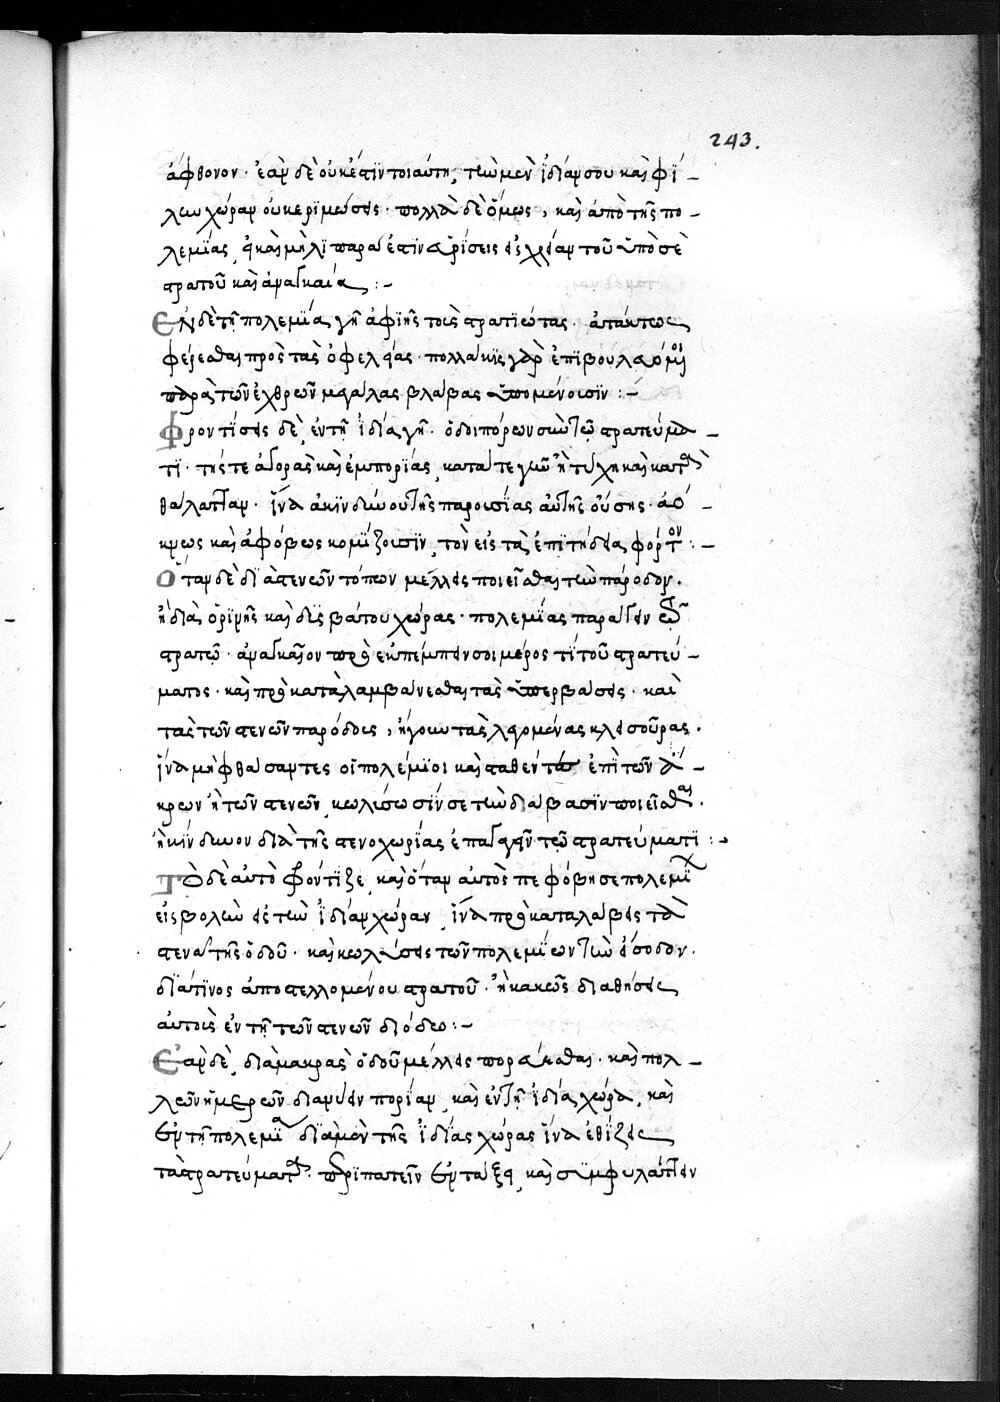 243.
ἄφθονον· ἐὰν δὲ οὐκ ἔστιν τοιαύτη, τὴν μὲν ἰδίαν σου καὶ φι-
λην χώραν οὐκ ἐρημώσεις· πολλὰ δὲ ὅμως, καὶ ἀπὸ τῆς πο-
λεμίας
στρατοῦ καὶ ἀναγκαία :-
Ἐν δὲ τῇ πολεμία γῆ ἀφίης τοὺς στρατιώτας ἀτάκτως
φέρεσθαι πρὸς τὰς ὠφελείας· πολλάκις γὰρ ἐπιβουλευόμενοι
παρὰ τῶν ἐχθρῶν μεγάλας βλάβας ὑπομένουσιν :-
Φροντίσεις δὲ, ἐν τῆ ἰδία γῆ· ὁδοιπόρων σὺν τῶ στρατεύμα-
τι· τῆς τε ἀγορᾶς καὶ ἐμπορίας, κατά τε γῆν ἢ τύχη καὶ κατὰ
θάλατταν· ἵνα ἀκινδύνου τῆς παρουσίας αὐτῆς οὔσης· ἀό-
κνως καὶ ἀφόβως κομίζουσιν, τὸν εἰς τὰ ἐπιτήδεια φόρτον :-
Ὅταν δὲ διὰ στενῶν τόπων μέλλεις ποιεῖσθαι τὴν πάροδον·
ἢ διὰ ὀρινῆς καὶ δυσβάτου χώρας· πολεμίας παρὰ
στρατῶ· ἀναγκαῖον προεκπέμπειν σοι μέρος τι τοῦ στρατεύ-
ματος· καὶ προκαταλαμβάνεσθαι τὰς ὑπερβάσεις· καὶ
τὰς τῶν στενῶν παρόδους, ἤγουν τὰς λεγομένας κλεισούρας·
ἵνα μὴ φθάσαντες οἱ πολέμιοι καὶ σταθέντες ἐπὶ τῶν ἄ-
κρων ἢ τῶν στενῶν, κωλύσωσίν σε τὴν διάβασιν ποιεῖσθαι·
ἢ κίνδυνον διὰ τῆς στενοχωρίας ἐπαγάγουν τῶ στρατεύματι :-
Τὸ δὲ αὐτὸ φρόντιζε, καὶ ὅταν αὐτὸς πεφόβησε πολεμίων
εἰσβολὴν εἰς τὴν ἰδίαν χώραν, ἵνα προκαταλάβεις τὰ
στενὰ τῆς ὁδοῦ· καὶ κωλύσεις τῶν πολεμίων τὴν εἴσοδον·
διά τινος ἀποστελλομένου στρατοῦ· ἢ κακῶς διαθήσεις
αὐτοὺς ἐν τῆ τῶν στενῶν διόδω :-
Ἐὰν δὲ, διὰ μακρᾶς ὁδοῦ μέλλεις πορεύεσθαι· καὶ πολ-
λῶν ἡμερῶν διανύειν πορίαν, καὶ ἐν τῆ ἰδία χώρα, καὶ
ἐν τῆ πολεμία διὰ μὲν τῆς ἰδίας χώρας ἵνα ἐθίζεις
τὰ στρατεύματα περιπατεῖν ἐν τάξει, καὶ συμφυλάττειν